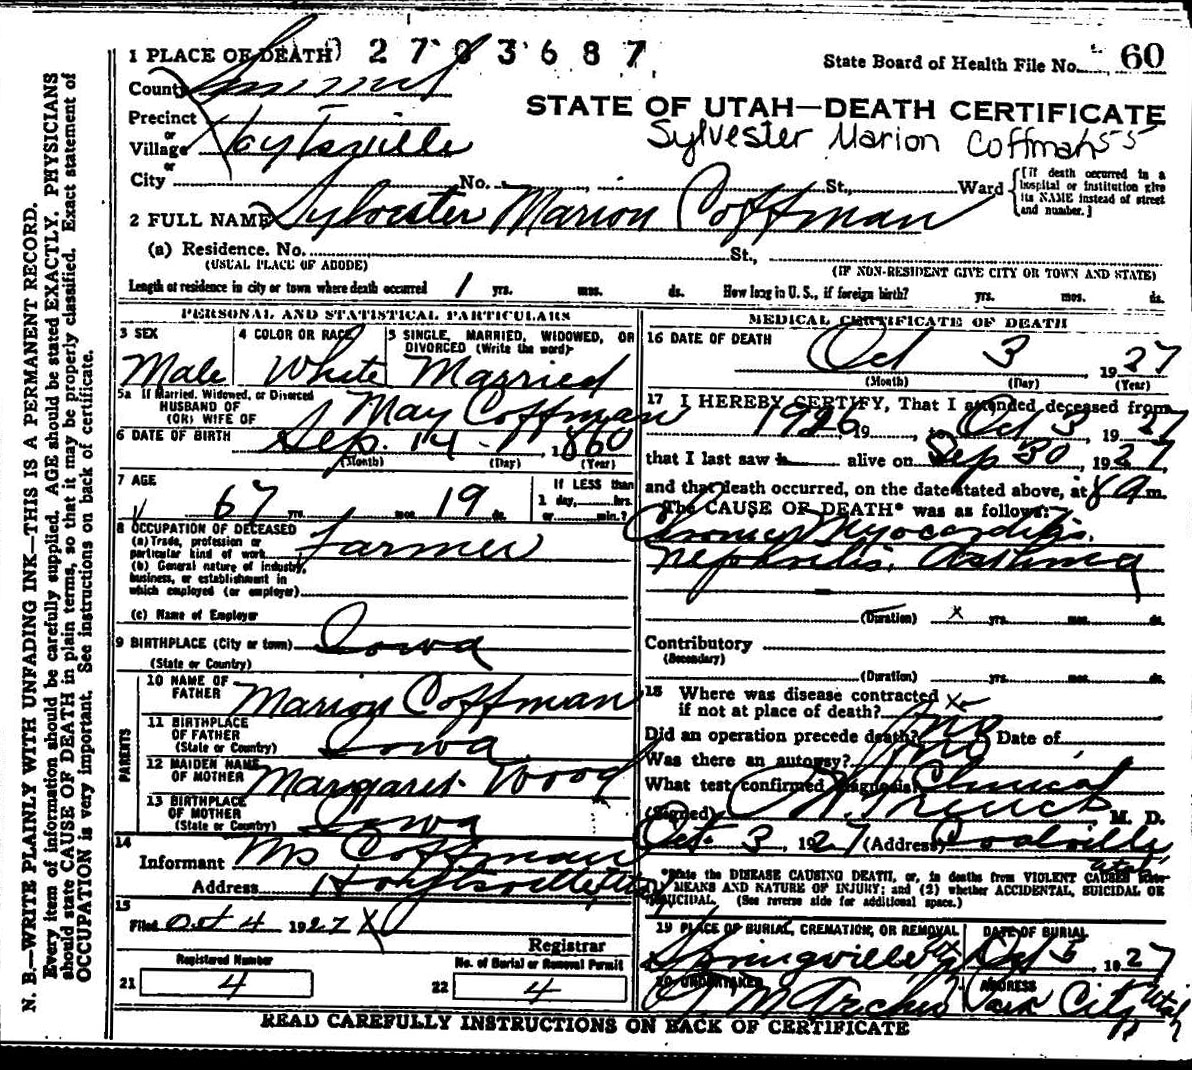 1 PLACE OF DEATH 2 7 0 3 6 8 7
State Board of Health File No. 60
County Summit
STATE OF UTAH—DEATH CERTIFICATE
Precinct
or
Village Hoytsville
Sylvester Marion Coffman 55
or
City No. St., Ward
[If death occurred in a hospital or institution give its NAME instead of street and number.]
2 FULL NAME Sylvester Marion Coffman
(a) Residence. No. St.,
(USUAL PLACE OF ABODE) (IF NON-RESIDENT GIVE CITY OR TOWN AND STATE)
Length of residence in city or town where death occurred 1 yrs. mos. ds. How long in U. S., if foreign birth? yrs. mos. ds.
PERSONAL AND STATISTICAL PARTICULARS
3 SEX
Male
4 COLOR OR RACE
White
5 SINGLE, MARRIED, WIDOWED, OR
DIVORCED (Write the word)
Married
5a If Married, Widowed, or Divorced
HUSBAND OF
(OR) WIFE OF May Coffman
6 DATE OF BIRTH Sep. 14 - 1860
(Month) (Day) (Year)
7 AGE
67 yrs. mos. 19 ds.
If LESS than
1 day, hrs.
or min.?
8 OCCUPATION OF DECEASED
(a) Trade, profession or
particular kind of work Farmer
(b) General nature of industry,
business, or establishment in
which employed (or employer)
(c) Name of Employer
9 BIRTHPLACE (City or town) Iowa
(State or Country)
PARENTS
10 NAME OF
FATHER Marion Coffman
11 BIRTHPLACE
OF FATHER
(State or Country) Iowa
12 MAIDEN NAME
OF MOTHER Margaret Wood
13 BIRTHPLACE
OF MOTHER
(State or Country) Iowa
14
Informant Mrs Coffman
Address Hoytsville Utah
15
Filed Oct 4 1927
Registrar
Registered Number
21 4
No. of Burial or Removal Permit
22 4
MEDICAL CERTIFICATE OF DEATH
16 DATE OF DEATH Oct 3 1927
(Month) (Day) (Year)
17 I HEREBY CERTIFY, That I attended deceased from
1926 19 , to Oct 3, 1927
that I last saw h alive on Sep 30, 1927,
and that death occurred, on the date stated above, at 8 a m.
The CAUSE OF DEATH* was as follows:
Chronic Myocarditis.
Nephritis. Asthma
(Duration) x yrs. mos. ds.
Contributory
(Secondary)
(Duration) yrs. mos. ds.
18 Where was disease contracted
if not at place of death?
Did an operation precede death? no Date of
Was there an autopsy? no
What test confirmed diagnosis? Clinical
(Signed) M. D.
Oct. 3, 1927 (Address) Coalville
Utah
*State the DISEASE CAUSING DEATH, or, in deaths from VIOLENT CAUSES state
(1) MEANS AND NATURE OF INJURY; and (2) whether ACCIDENTAL, SUICIDAL OR
HOMICIDAL. (See reverse side for additional space.)
19 PLACE OF BURIAL, CREMATION, OR REMOVAL
Springville
DATE OF BURIAL
Oct 5 1927
20 UNDERTAKER
ADDRESS
Park City Utah
READ CAREFULLY INSTRUCTIONS ON BACK OF CERTIFICATE
N. B.—WRITE PLAINLY WITH UNFADING INK—THIS IS A PERMANENT RECORD.
Every item of information should be carefully supplied. AGE should be stated EXACTLY. PHYSICIANS
should state CAUSE OF DEATH in plain terms, so that it may be properly classified. Exact statement of
OCCUPATION is very important. See instructions on back of certificate.